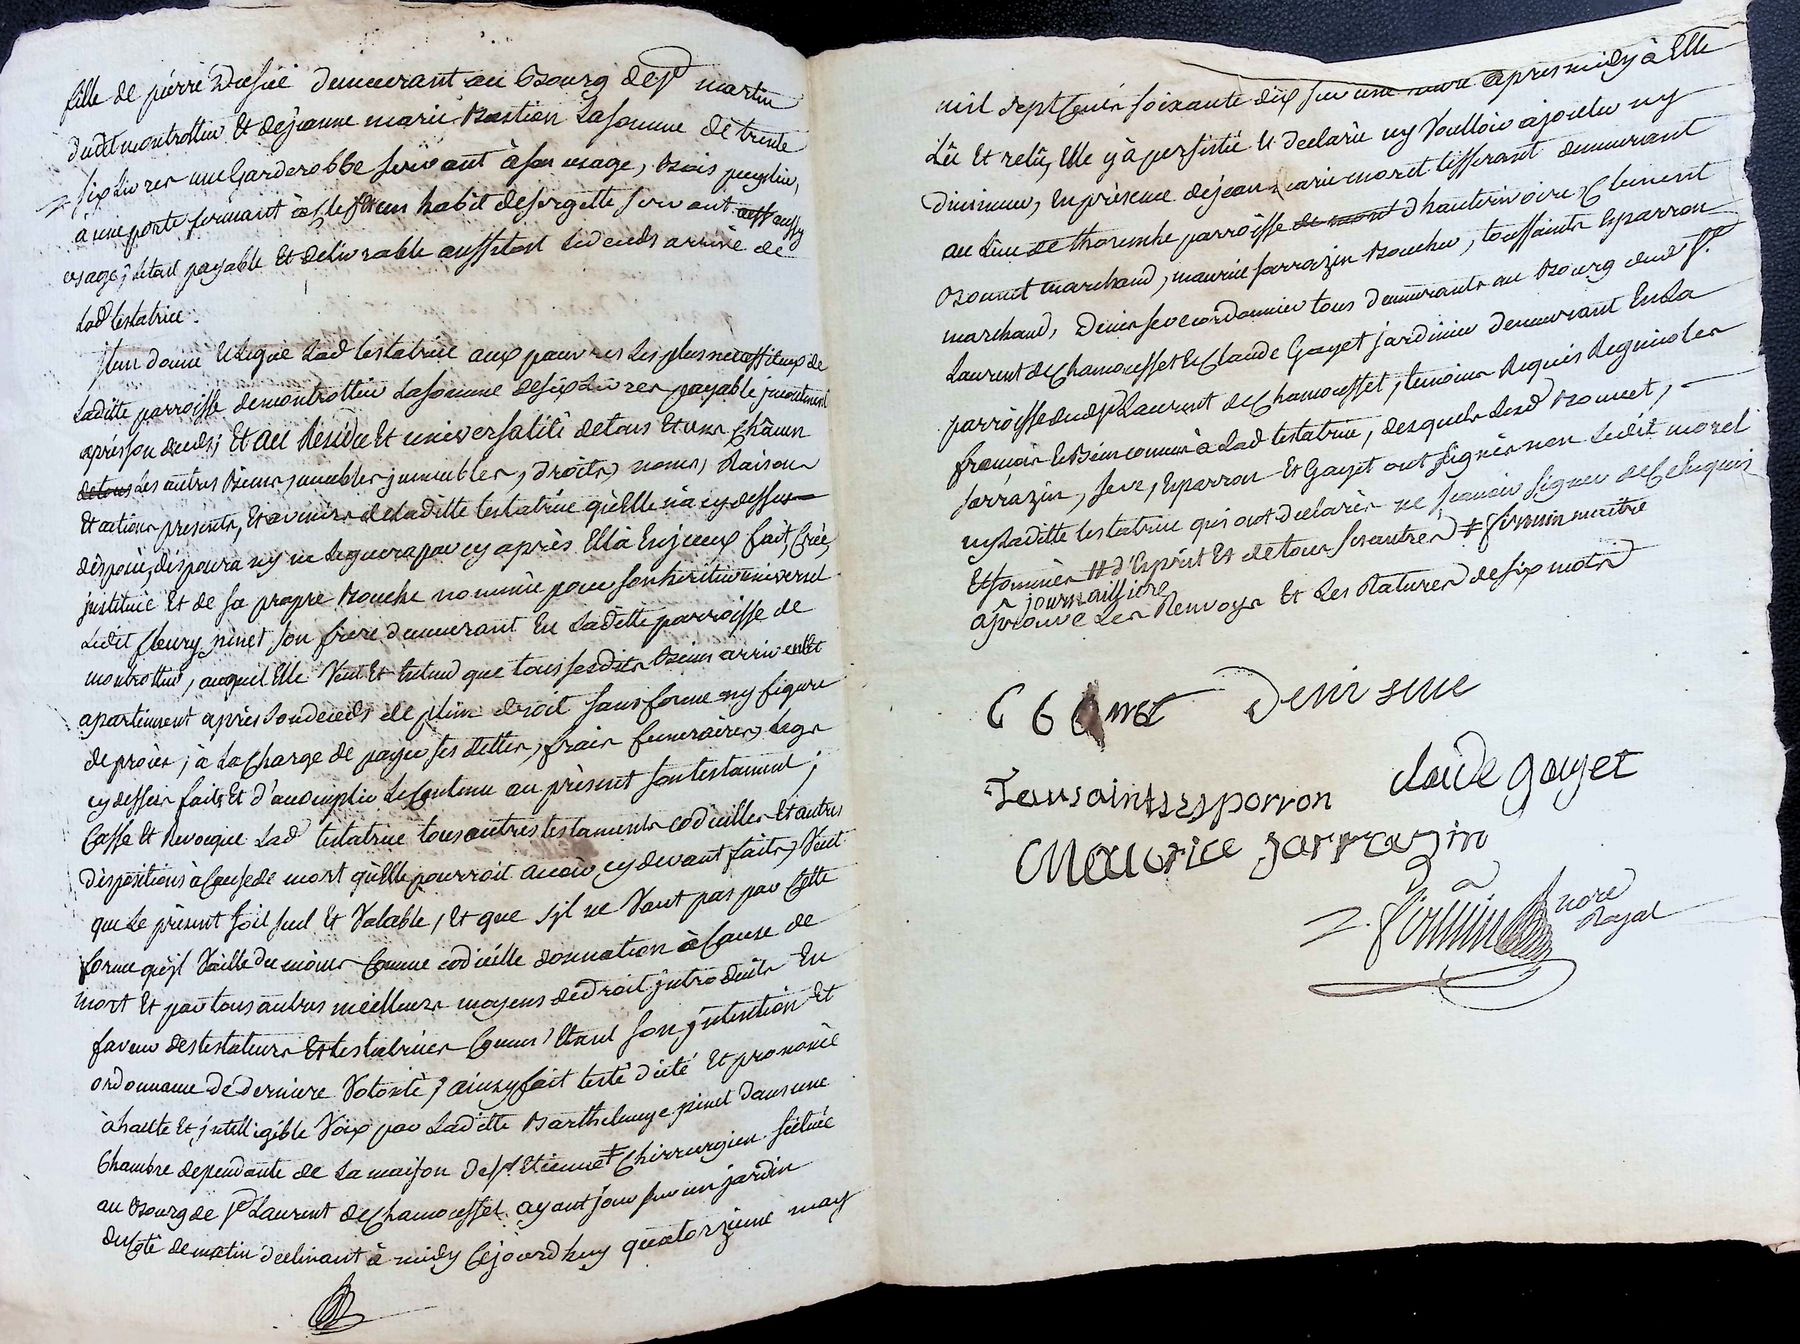 fille de pierre Dusié demeurant au Bourg de St martin
dudit montrottier Et de jeanne marie Bastion La somme de trente
six Livres une Garderobbe servant à son usage, Bois peuplier,
à une porte fermant à clef Et un habit de sergette servant aussy
usage; le tout payable Et delivrable aussitost le deceds arrivé de
Lad testatrice.
Item donne Et Legue Lad testatrice aux pauvres Les plus necessiteux de
Laditte parroisse de montrottier La somme de six Livres payable jncontinent
après son deceds; Et au Residu Et universalité de tous Et uns Châcun
de tous Les autres Biens, meubles jmmeubles, droits, noms, Raisons
Et actions presents, Et avenirs de Laditte testatrice qu'Elle n'a cy dessus
disposé, disposera ny ne Leguera par cy après Ell'a Enjceux fait, Créé,
jnstitué Et de sa propre Bouche nommé pour son héritier universel
Ledit fleury pinet son frere demeurant En Laditte parroisse de
montrottier, auquel Elle Veut Et Entend que tous sesdits Biens arrivent Et
apartiennent après son deceds de plein droit sans forme ny figure
de procès; à La Charge de payer ses dettes, frais funeraires, Legs
cy dessus faits Et d'accomplir Le Contenu au présent son testament;
Casse Et Revoque Lad testatrice tous autres testaments codicilles Et autres
dispositions à Cause de mort qu'Elle pourroit avoir cy devant faits, Veut
que Le présent soit seul Et Valable, Et que s'jl ne Vaut pas par Cette
forme qu'jl Vaille du moins Comme codicille donnation à Cause de
mort Et par tous autres meilleurs moyens de droit jntroduits En
faveur des testateurs Et testatrices Comm' Etant son jntention Et
ordonnance de derniere Volonté; ainsy fait testé dicté Et prononcé
à haute Et jntelligible Voix par Laditte Barthelemye pinet dans une
Chambre dependante de La maison de Sr Etienne ≠ Chirurgien scituée
au Bourg de St Laurent de Chamousset ayant jour sur un jardin
du Côté de matin declinant à midy Cejourd'huy quatorzieme may
mil sept Cents soixante dix sur une heure apres midy à Elle
Lû Et relû, Elle y à persisté Et declaré ny Voulloir ajouter ny
diminuer, En présence de jean marie morel tisserant demeurant
au Lieu de Thorenche parroisse de mont d'hauterivoire, Clement
Bonnet marchand, maurice sarrazin Boucher, toussaints Esparron
marchand, Denis seve cordonnier tous demeurants au Bourg dud St
Laurent de Chamousset Et Claude Gayet jardinier demeurant En La
parroisse dud St Laurent de Chamousset, temoins Requis Regnicoles
françois Et Bien connus à Lad testatrice, desquels Lesd Bonnet,
sarrazin, seve, Esparron Et Gayet ont signés non Ledit morel
ny Laditte testatrice qui ont declarés ne scavoir signer de Ce Enquis
Et sommés ⧺ d'Esprit Et de tous ses autres ≠ firmin maitre
journailliere
aprouvé Les Renvoys Et Les Ratures de six mots
C Bonnet Deni seve
Tousaints esporron claude gayet
Maurice sarrazin
firmin nore
Royal